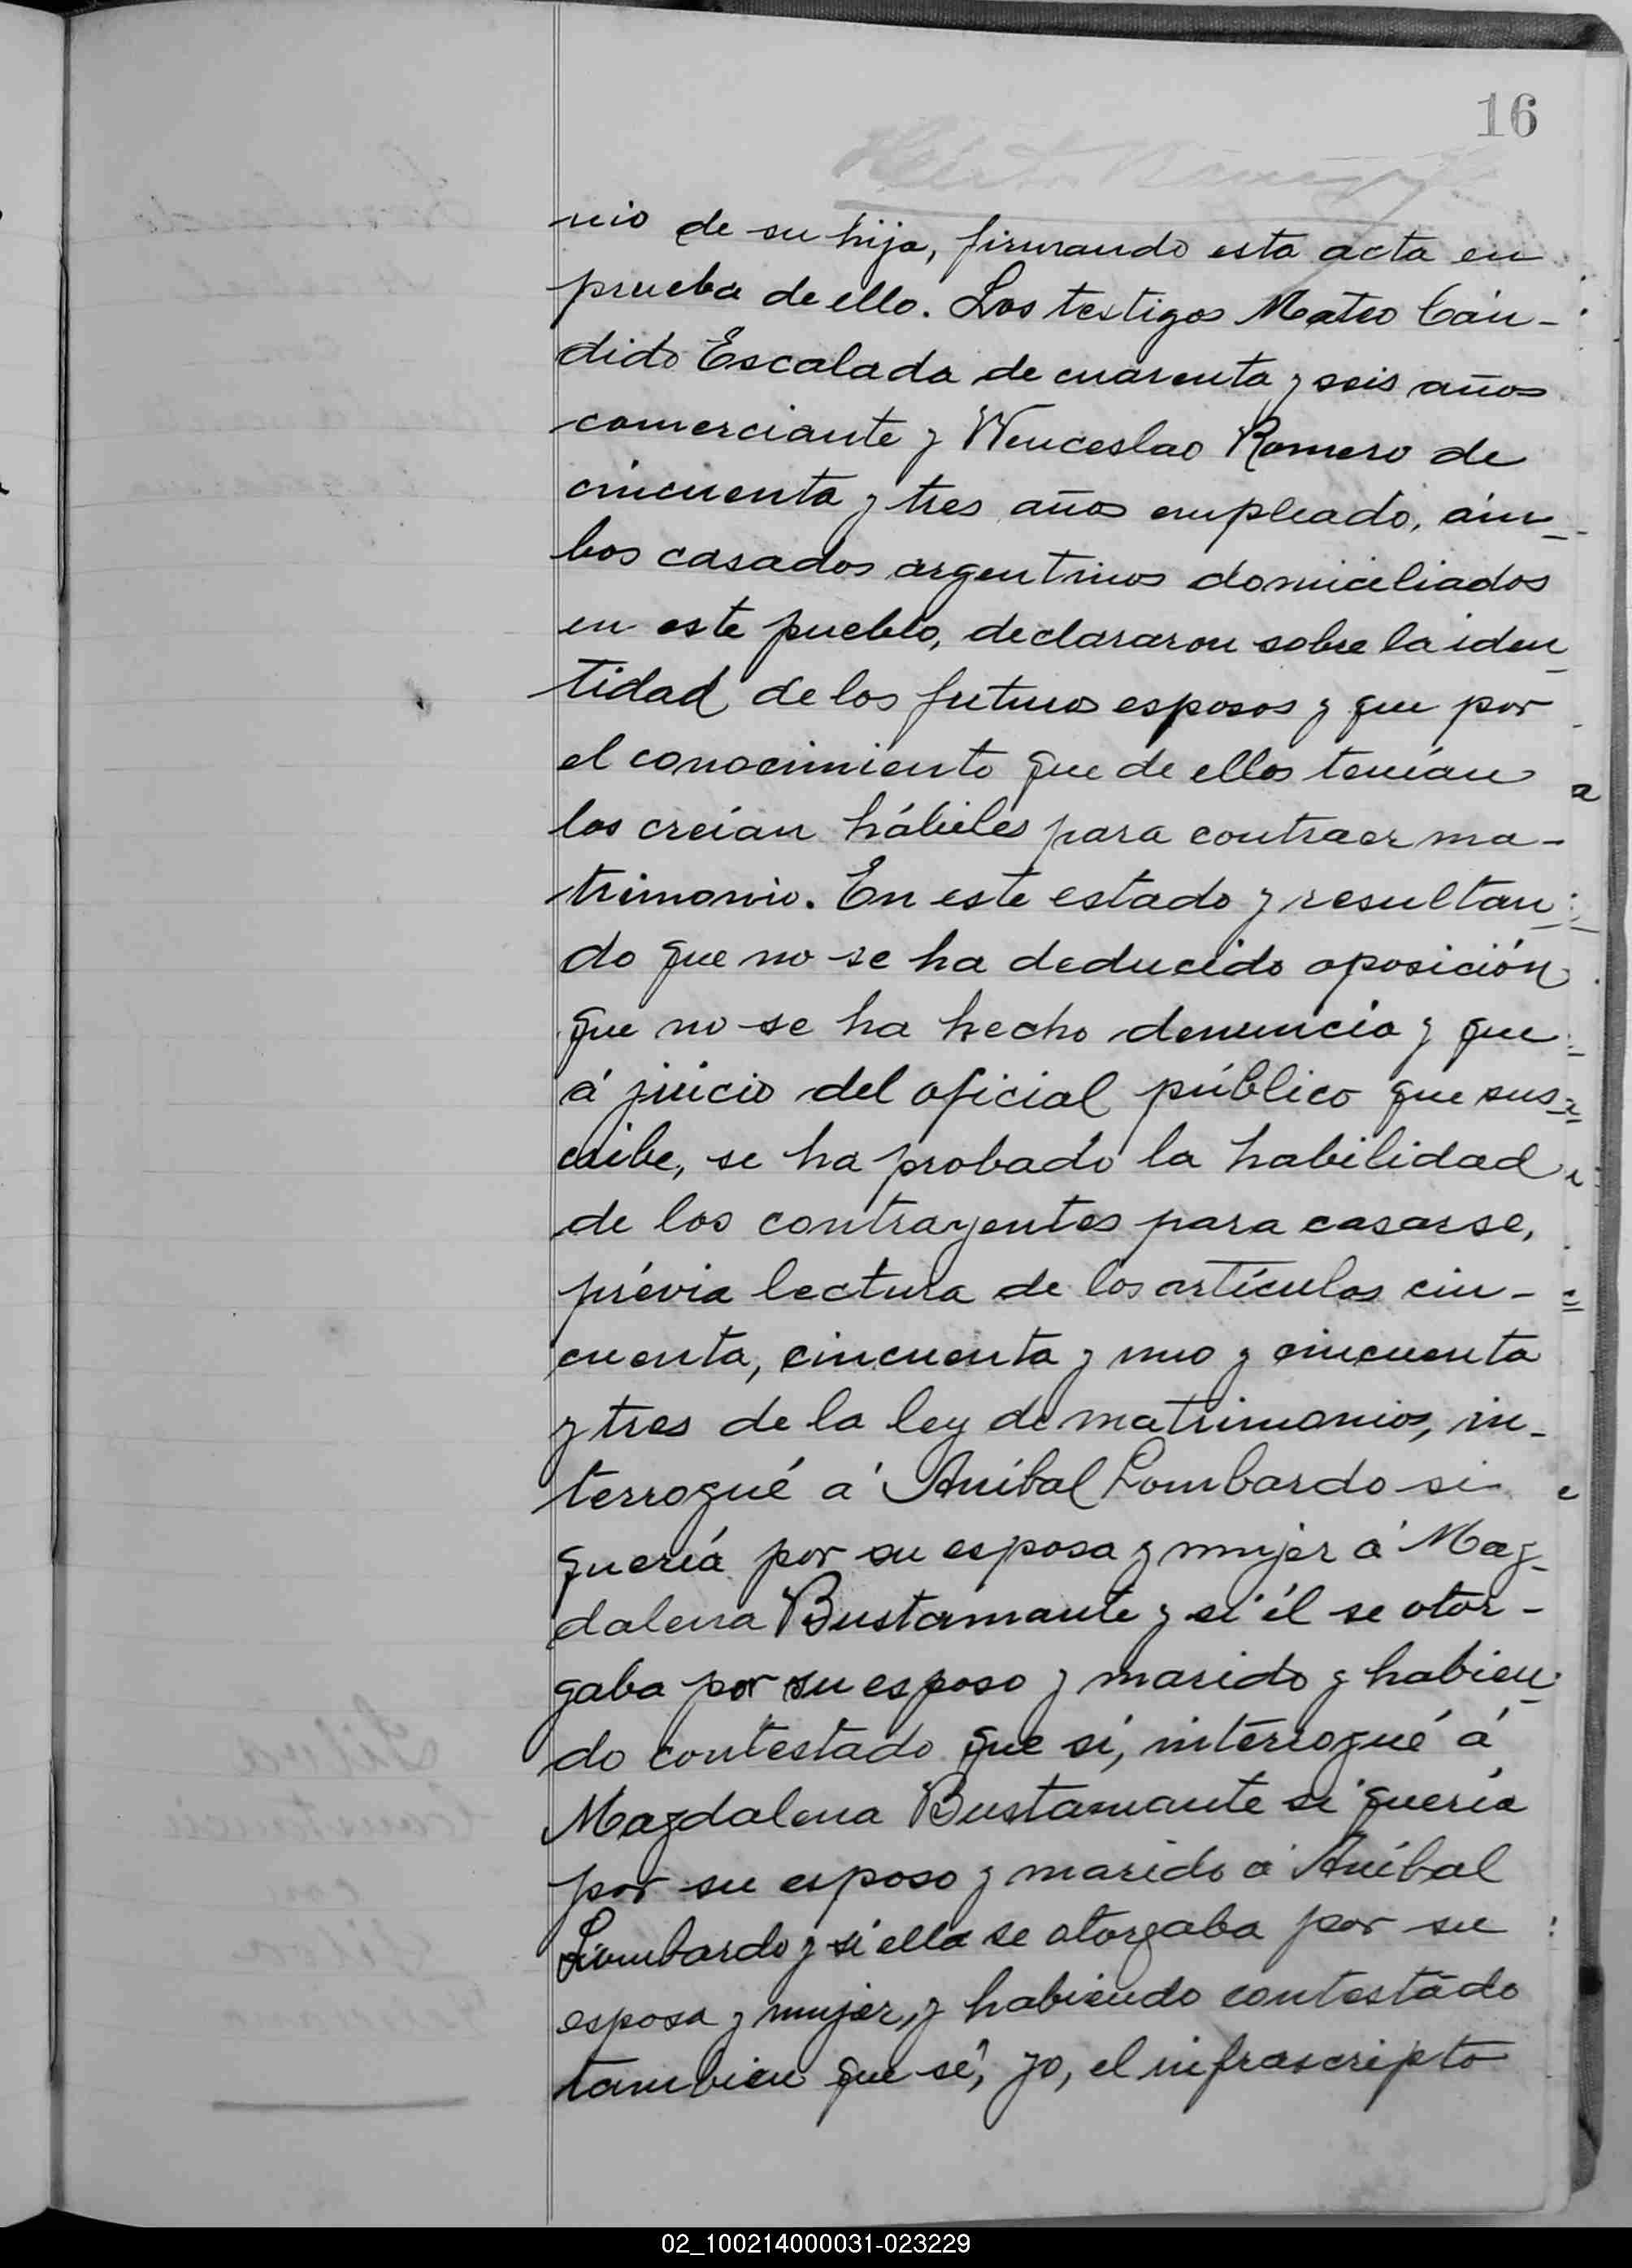 16
nio de su hija, firmando esta acta en
prueba de ello. Los testigos Mateo Cán-
dido Escalada de cuarenta y seis años
comerciante y Wenceslao Romero de
cincuenta y tres años empleado, ám-
bos casados argentinos domiciliados
en este pueblo, declararon sobre la iden-
tidad de los futuros esposos y que por
el conocimiento que de ellos tenían
los creían hábiles para contraer ma-
trimonio. En este estado y resultan-
do que no se ha deducido oposición
que no se ha hecho denuncia y que
á juicio del oficial público que sus-
cribe, se ha probado la habilidad
de los contrayentes para casarse,
prévia lectura de los artículos cin-
cuenta, cincuenta y uno y cincuenta
y tres de la ley de matrimonios, in-
terrogué á Aníbal Lombardo si
quería por su esposa y mujer á Mag-
dalena Bustamante y si él se otor-
gaba por su esposo y marido y habien-
do contestado que sí, interrogué á
Magdalena Bustamante si quería
por su esposo y marido á Aníbal
Lombardo y si ella se otorgaba por su
esposa y mujer, y habiendo contestado
tambien que sí, yo, el infrascripto
02_100214000031-023229